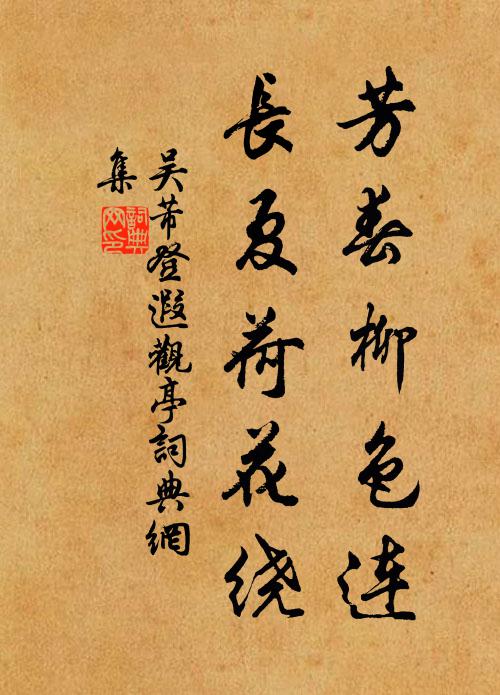 芳春柳色連
長夏荷花绕
吴芾登遐觀亭詞典網
集
詞典網印